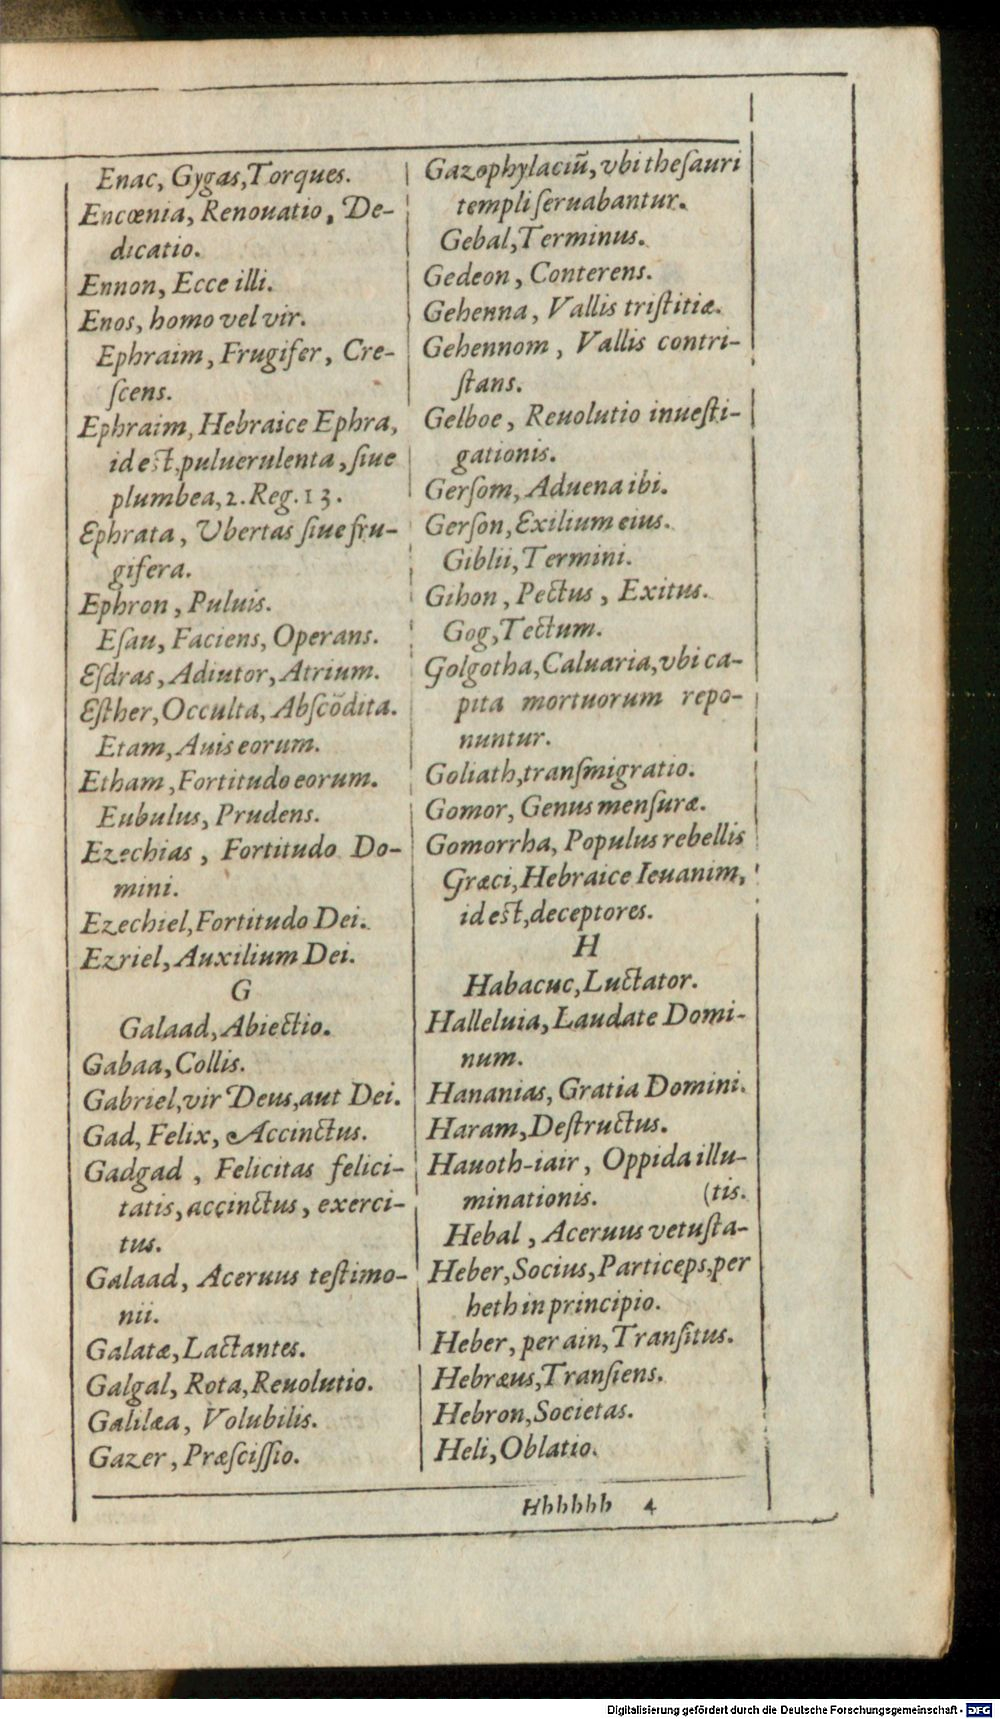 Enac, Gygas, Torques.
Encœnia, Renouatio, De-
dicatio.
Ennon, Ecce illi.
Enos, homo vel vir.
Ephraim, Frugifer, Cre-
ſcens.
Ephraim, Hebraice Ephra,
id est, puluerulenta, ſiue
plumbea, 2. Reg. 13.
Ephrata, Vbertas ſiue fru-
gifera.
Ephron, Puluis.
Eſau, Faciens, Operans.
Eſdras, Adiutor, Atrium.
Eſther, Occulta, Abſcōdita.
Etam, Auis eorum.
Etham, Fortitudo eorum.
Eubulus, Prudens.
Ezechias, Fortitudo Do-
mini.
Ezechiel, Fortitudo Dei.
Ezriel, Auxilium Dei.
G
Galaad, Abiectio.
Gabaa, Collis.
Gabriel, vir Deus, aut Dei.
Gad, Felix, Accinctus.
Gadgad, Felicitas felici-
tatis, accinctus, exerci-
tus.
Galaad, Aceruus teſtimo-
nii.
Galatæ, Lactantes.
Galgal, Rota, Reuolutio.
Galilæa, Volubilis.
Gazer, Præſciſſio.
Gazophylaciū, vbi theſauri
templi ſeruabantur.
Gebal, Terminus.
Gedeon, Conterens.
Gehenna, Vallis triſtitiæ.
Gehennom, Vallis contri-
ſtans.
Gelboe, Reuolutio inueſti-
gationis.
Gerſom, Aduena ibi.
Gerſon, Exilium eius.
Giblii, Termini.
Gihon, Pectus, Exitus.
Gog, Tectum.
Golgotha, Caluaria, vbi ca-
pita mortuorum repo-
nuntur.
Goliath, tranſmigratio.
Gomor, Genus menſuræ.
Gomorrha, Populus rebellis
Græci, Hebraice Ieuanim,
id est, deceptores.
H
Habacuc, Luctator.
Halleluia, Laudate Domi-
num.
Hananias, Gratia Domini.
Haram, Deſtructus.
Hauoth-iair, Oppida illu-
minationis. (tis.
Hebal, Aceruus vetuſta-
Heber, Socius, Particeps, per
heth in principio.
Heber, per ain, Tranſitus.
Hebræus, Tranſiens.
Hebron, Societas.
Heli, Oblatio.
Hhhhhh 4
Digitalisierung gefördert durch die Deutsche Forschungsgemeinschaft - DFG